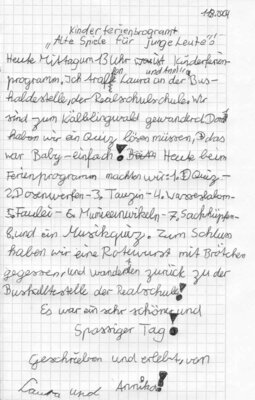 1.9.2004
Kinderferienprogramm
"Alte Spiele für junge Leute"!
Heute Mittag um 13 Uhr Kinderferien-
programm. Ich Laura an der Bus-
haldestelle, der Realschulschule. Wir
sind zum Kälblingwald gewandert. Dort
haben wir ein Quiz lösen müssen, das
war Baby-einfach! Heute beim
Ferienprogramm machten wir: 1. Quiz -
2. Dosenwerfen - 3. Tauzin - 4.
5. - 6. - 7. Sackhüpfen -
8. und ein Musikquiz. Zum Schluss
haben wir eine Rotewurst mit Brötchen
gegessen, und wanderten zurück zu der
Bushalltestelle der Realschule!
Es war ein sehr schöner und
Spassiger Tag!
Geschrieben und erlebt, von
Laura und Annika!